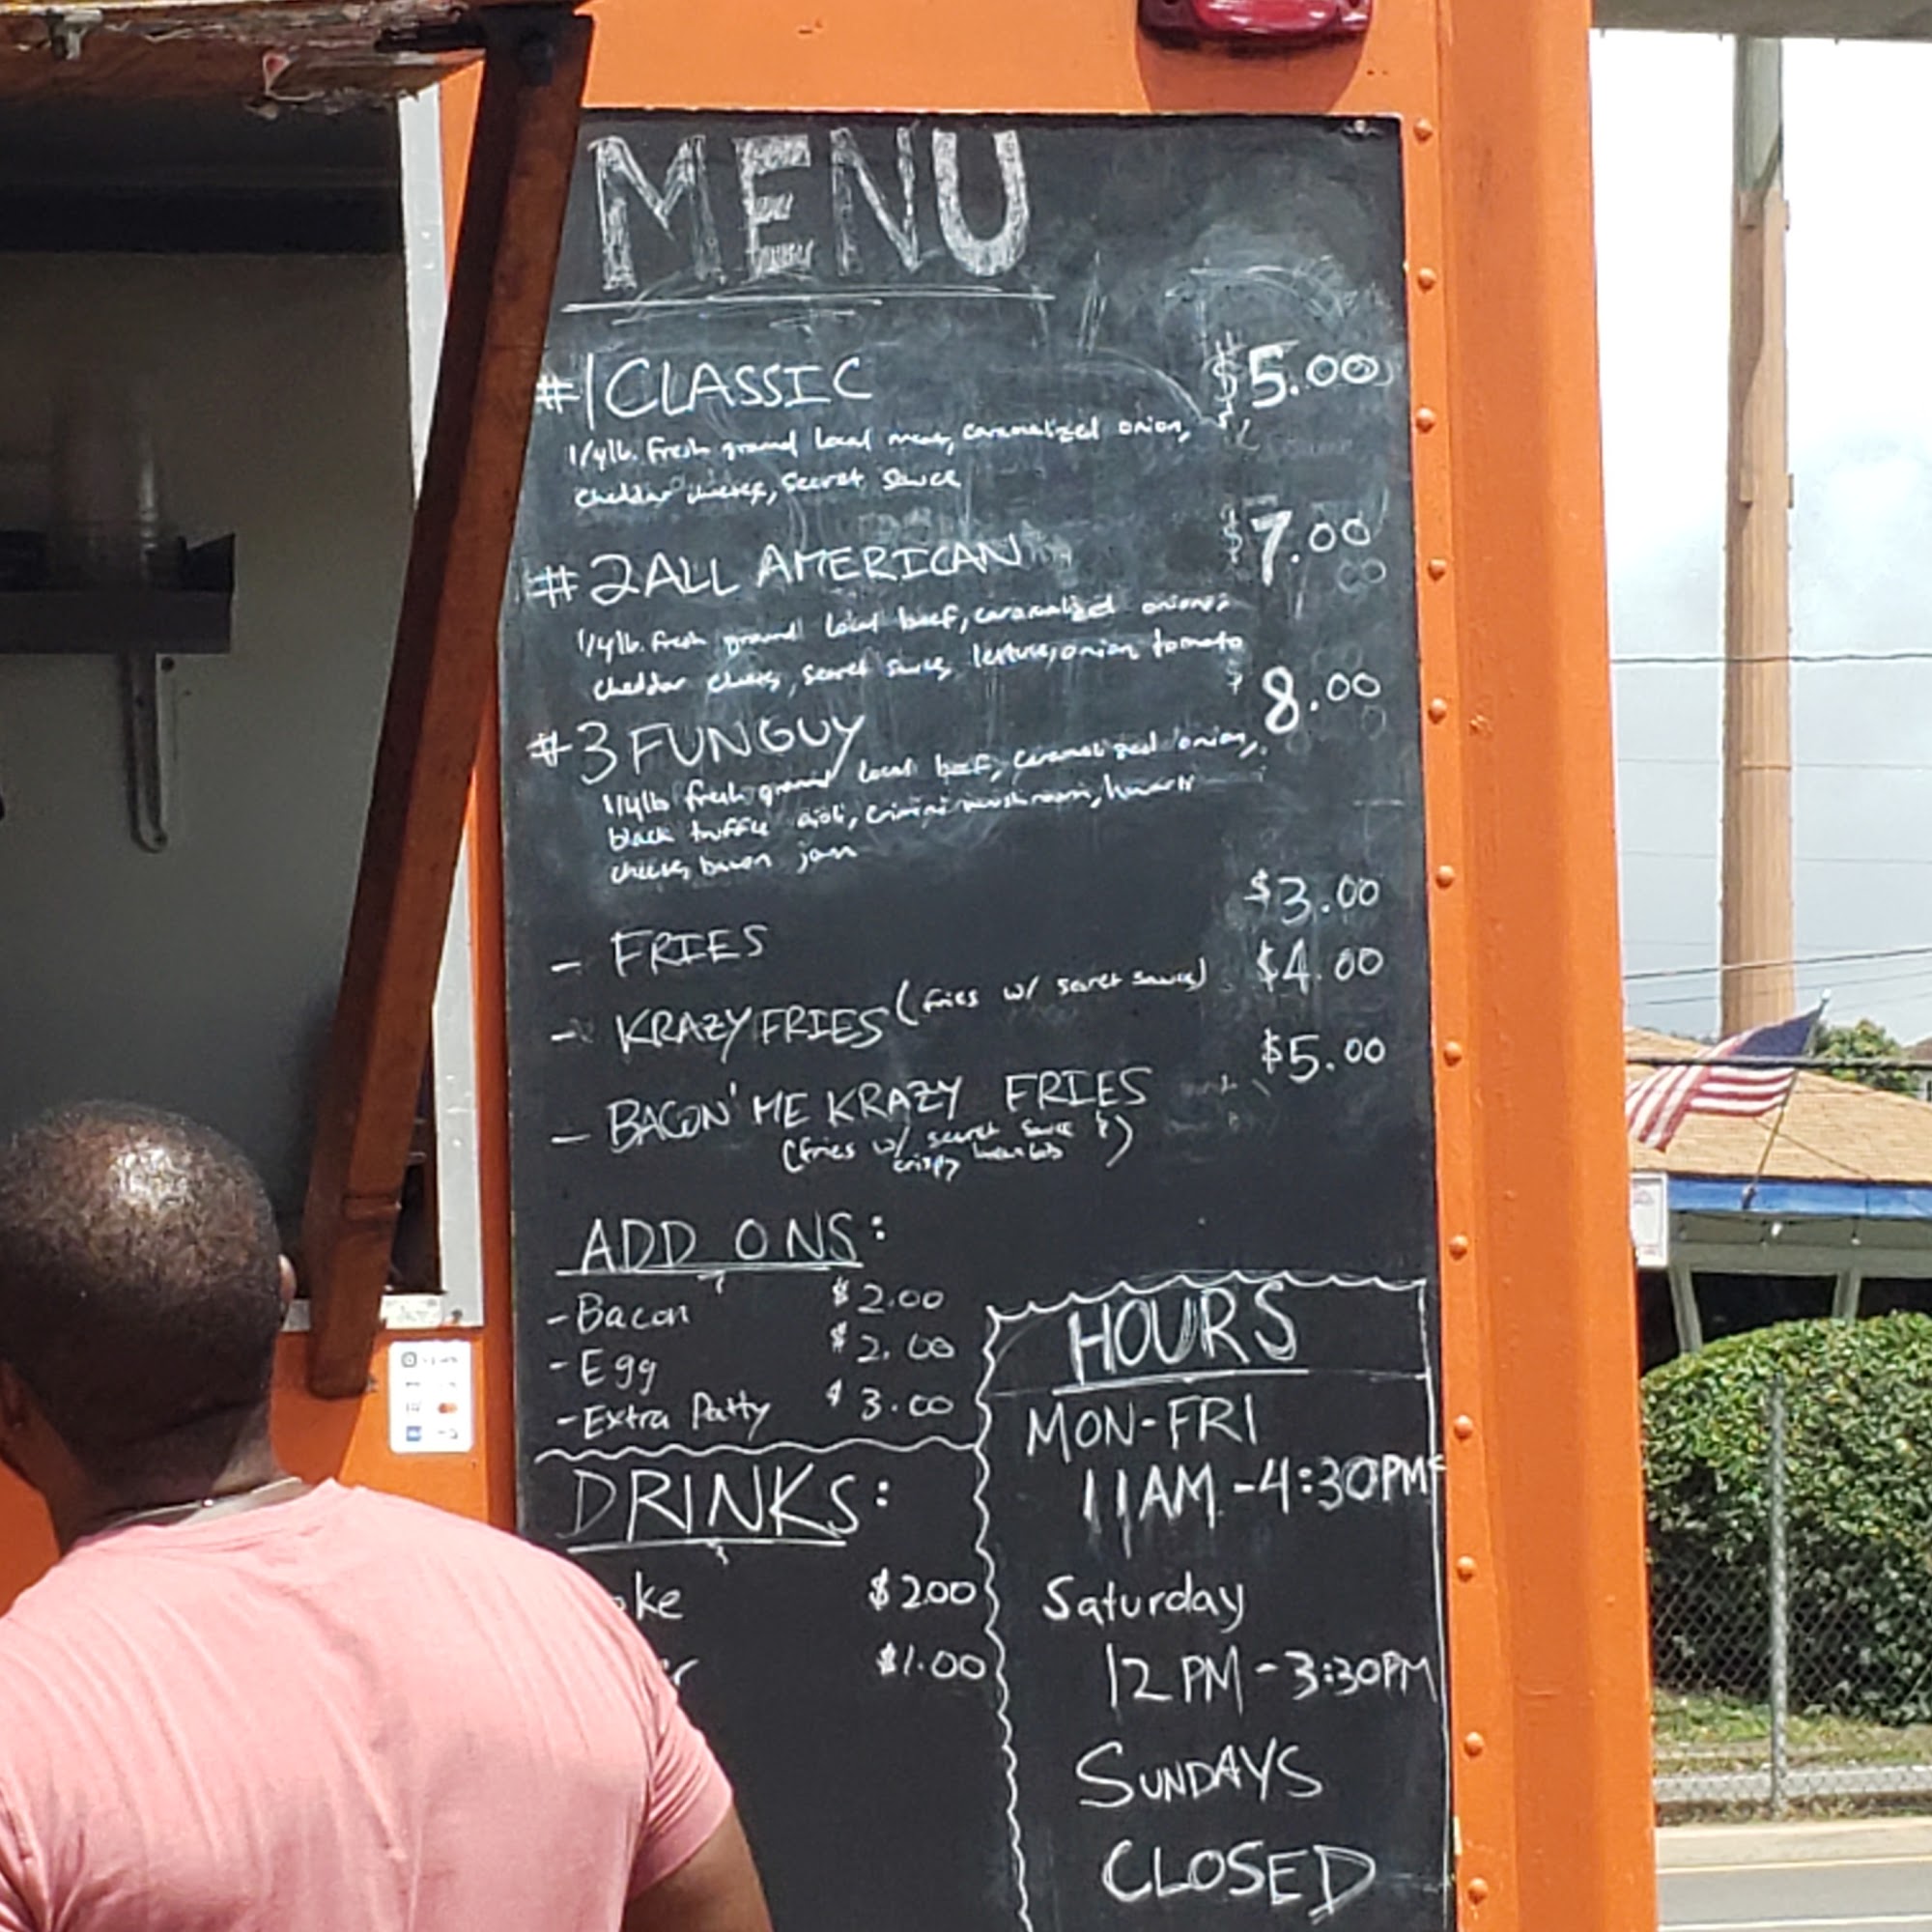 MENU
#1 CLASSIC $5.00
1/4lb. fresh ground local meat, caramelized onion,
cheddar cheese, secret sauce
#2 ALL AMERICAN $7.00
1/4lb. fresh ground local beef, caramelized onions,
cheddar cheese, secret sauce, lettuce, onion, tomato
#3 FUN GUY $8.00
1/4lb fresh ground local beef, caramelized onion,
black truffle aioli, crimini mushroom, havarti
cheese, bacon jam
- FRIES $3.00
- KRAZY FRIES (fries w/ secret sauce) $4.00
- BACON' ME KRAZY FRIES $5.00
(fries w/ secret sauce &)
crispy bacon bits
ADD ONS:
- Bacon $2.00
- Egg $2.00
- Extra Patty $3.00
DRINKS:
oke $2.00
r $1.00
HOURS
MON-FRI
11AM-4:30PM
Saturday
12PM-3:30PM
SUNDAYS
CLOSED